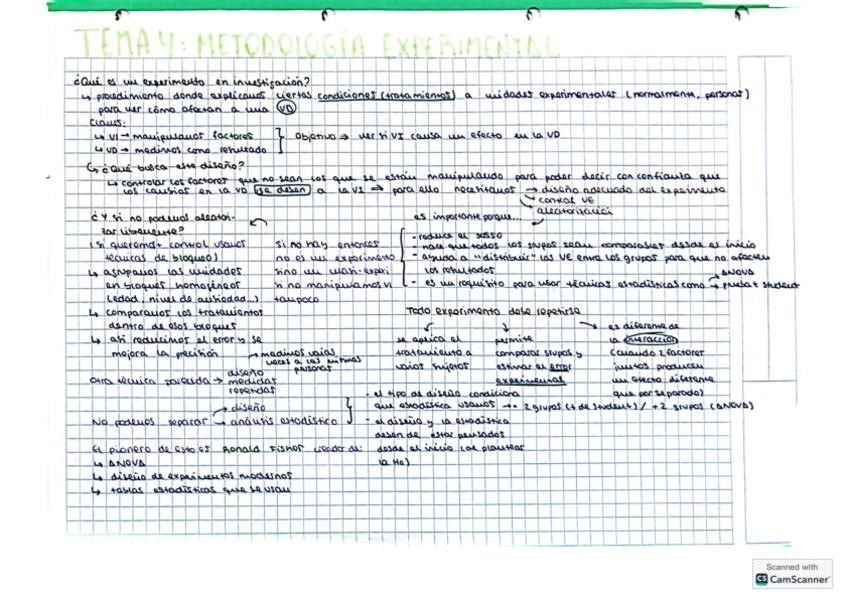 TEMA 4: METODOLOGÍA EXPERIMENTAL
¿Qué es un experimento en investigación?
↳ procedimiento donde explicamos ciertas condiciones (tratamientos) a unidades experimentales (normalmente, personas)
para ver cómo afectan a una VD
Claves:
↳ VI → manipulamos factores
↳ VD → medimos como resultado
Objetivo → ver si VI causa un efecto en la VD
↳ ¿Qué busca este diseño?
↳ controlar los factores que no sean los que se están manipulando para poder decir con confianza que
los cambios en la VD se deben a la VI → para ello necesitamos → diseño adecuado del experimento
control VE
aleatorización
¿Y si no podemos aleatori-
zar libremente?
(si queremos control usamos
técnicas de bloqueo)
↳ agrupamos las unidades
en bloques homogéneos
(edad, nivel de ansiedad...)
↳ comparamos los tratamientos
dentro de esos bloques
↳ así reducimos el error y se
mejora la precisión
si no hay entonces
no es un experimento
sino un cuasi-experi
si no manipulamos VI
tampoco
es importante porque...
- reduce el sesgo
- hace que todos los grupos sean comparables desde el inicio
- ayuda a "distribuir" las VE entre los grupos para que no afecten
los resultados
- es un requisito para usar técnicas estadísticas como → ANOVA
prueba t student
Todo experimento debe repetirse
se aplica el
tratamiento a
varios sujetos
permite
comparar grupos y
estimar el error
experimental
es diferente de
la interacción
(cuando 2 factores
juntos producen
un efecto diferente
que por separado)
Otra técnica parecida → diseño
medidas
repetidas
→ medimos varias
veces a las mismas
personas
No podemos separar → diseño
→ análisis estadístico
- el tipo de diseño condiciona
que estadística usamos → 2 grupos (t de student) / +2 grupos (ANOVA)
- el diseño y la estadística
deben de estar pensados
desde el inicio (al plantear
la H0)
El pionero de esto es Ronald Fisher creador de:
↳ ANOVA
↳ diseño de experimentos modernos
↳ tablas estadísticas que se usan
Scanned with
CS CamScanner